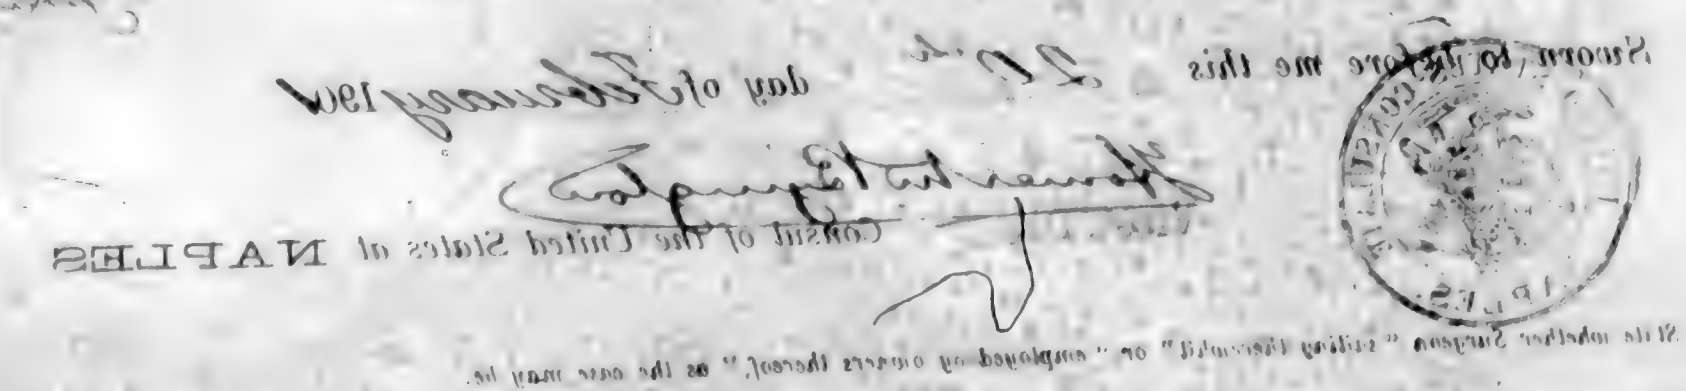 Sworn to before me this 20th day of February 1901
Homer M. Byington
Consul of the United States at NAPLES
State whether Surgeon "sailing therewith" or "employed by owners thereof," as the case may be.